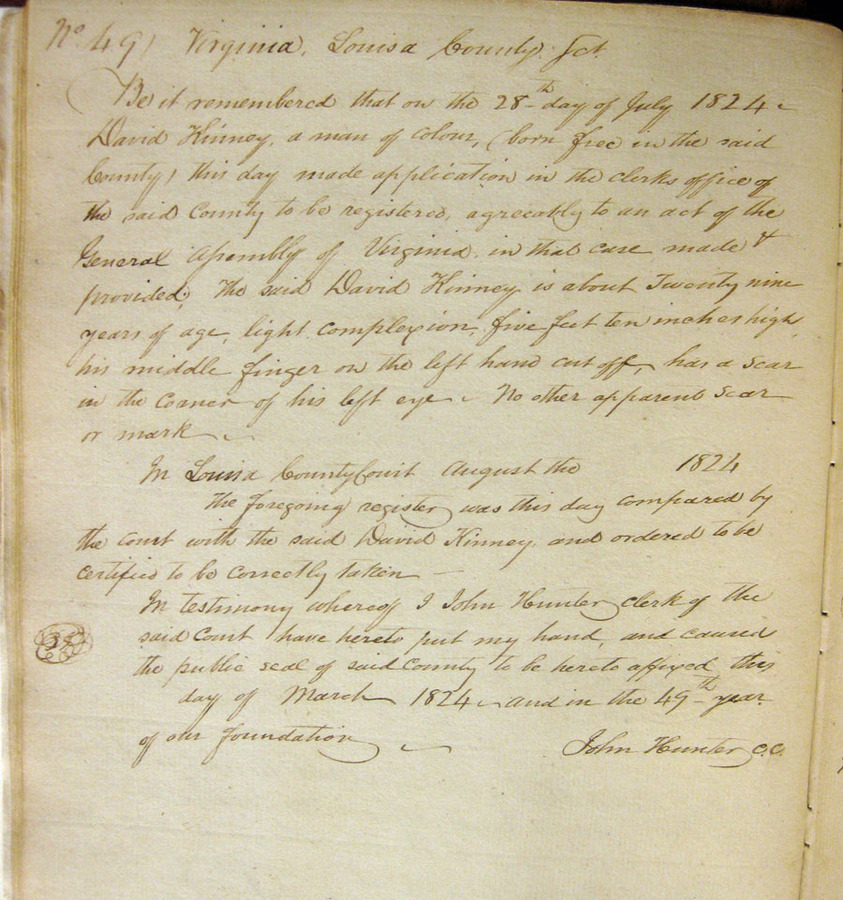 No 49) Virginia, Louisa County Sct.
Be it remembered that on the 28th day of July 1824
David Kinney, a man of colour, (born free in the said
County) this day made application in the clerks office of
the said County to be registered, agreeably to an act of the
General Assembly of Virginia in that case made &
provided; The said David Kinney is about Twenty nine
years of age, light complexion, five feet ten inches high,
his middle finger on the left hand cut off, has a scar
in the corner of his left eye No other apparent scar
or mark
In Louisa County Court August the 1824
The foregoing register was this day compared by
the court with the said David Kinney, and ordered to be
certified to be correctly taken
In testimony whereof I John Hunter clerk of the
said Court have hereto put my hand, and caused
the public seal of said County to be hereto affixed this
day of March 1824 and in the 49th year
of our foundation
John Hunter C.C.